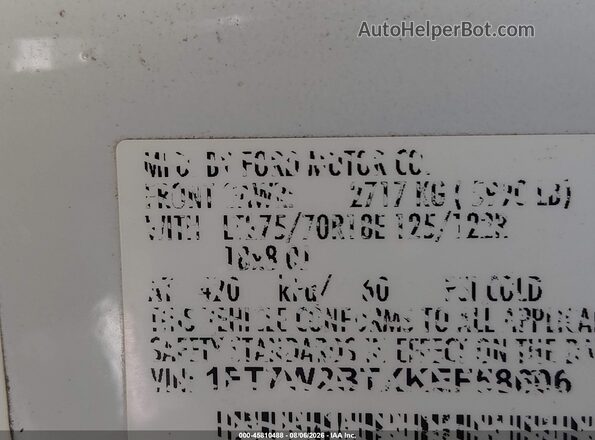 AutoHelperBot.com
MFD. BY FORD MOTOR CO.
FRONT GAWR: 2717 KG ( 5990 LB)
WITH LT275/70R18E 125/122R
18x8.0J
AT 420 kPa/ 60 PSI COLD
THIS VEHICLE CONFORMS TO ALL APPLICA
SAFETY STANDARDS IN EFFECT ON THE DA
VIN:
000-45810488 - 08/06/2026 - IAATRANSPORT